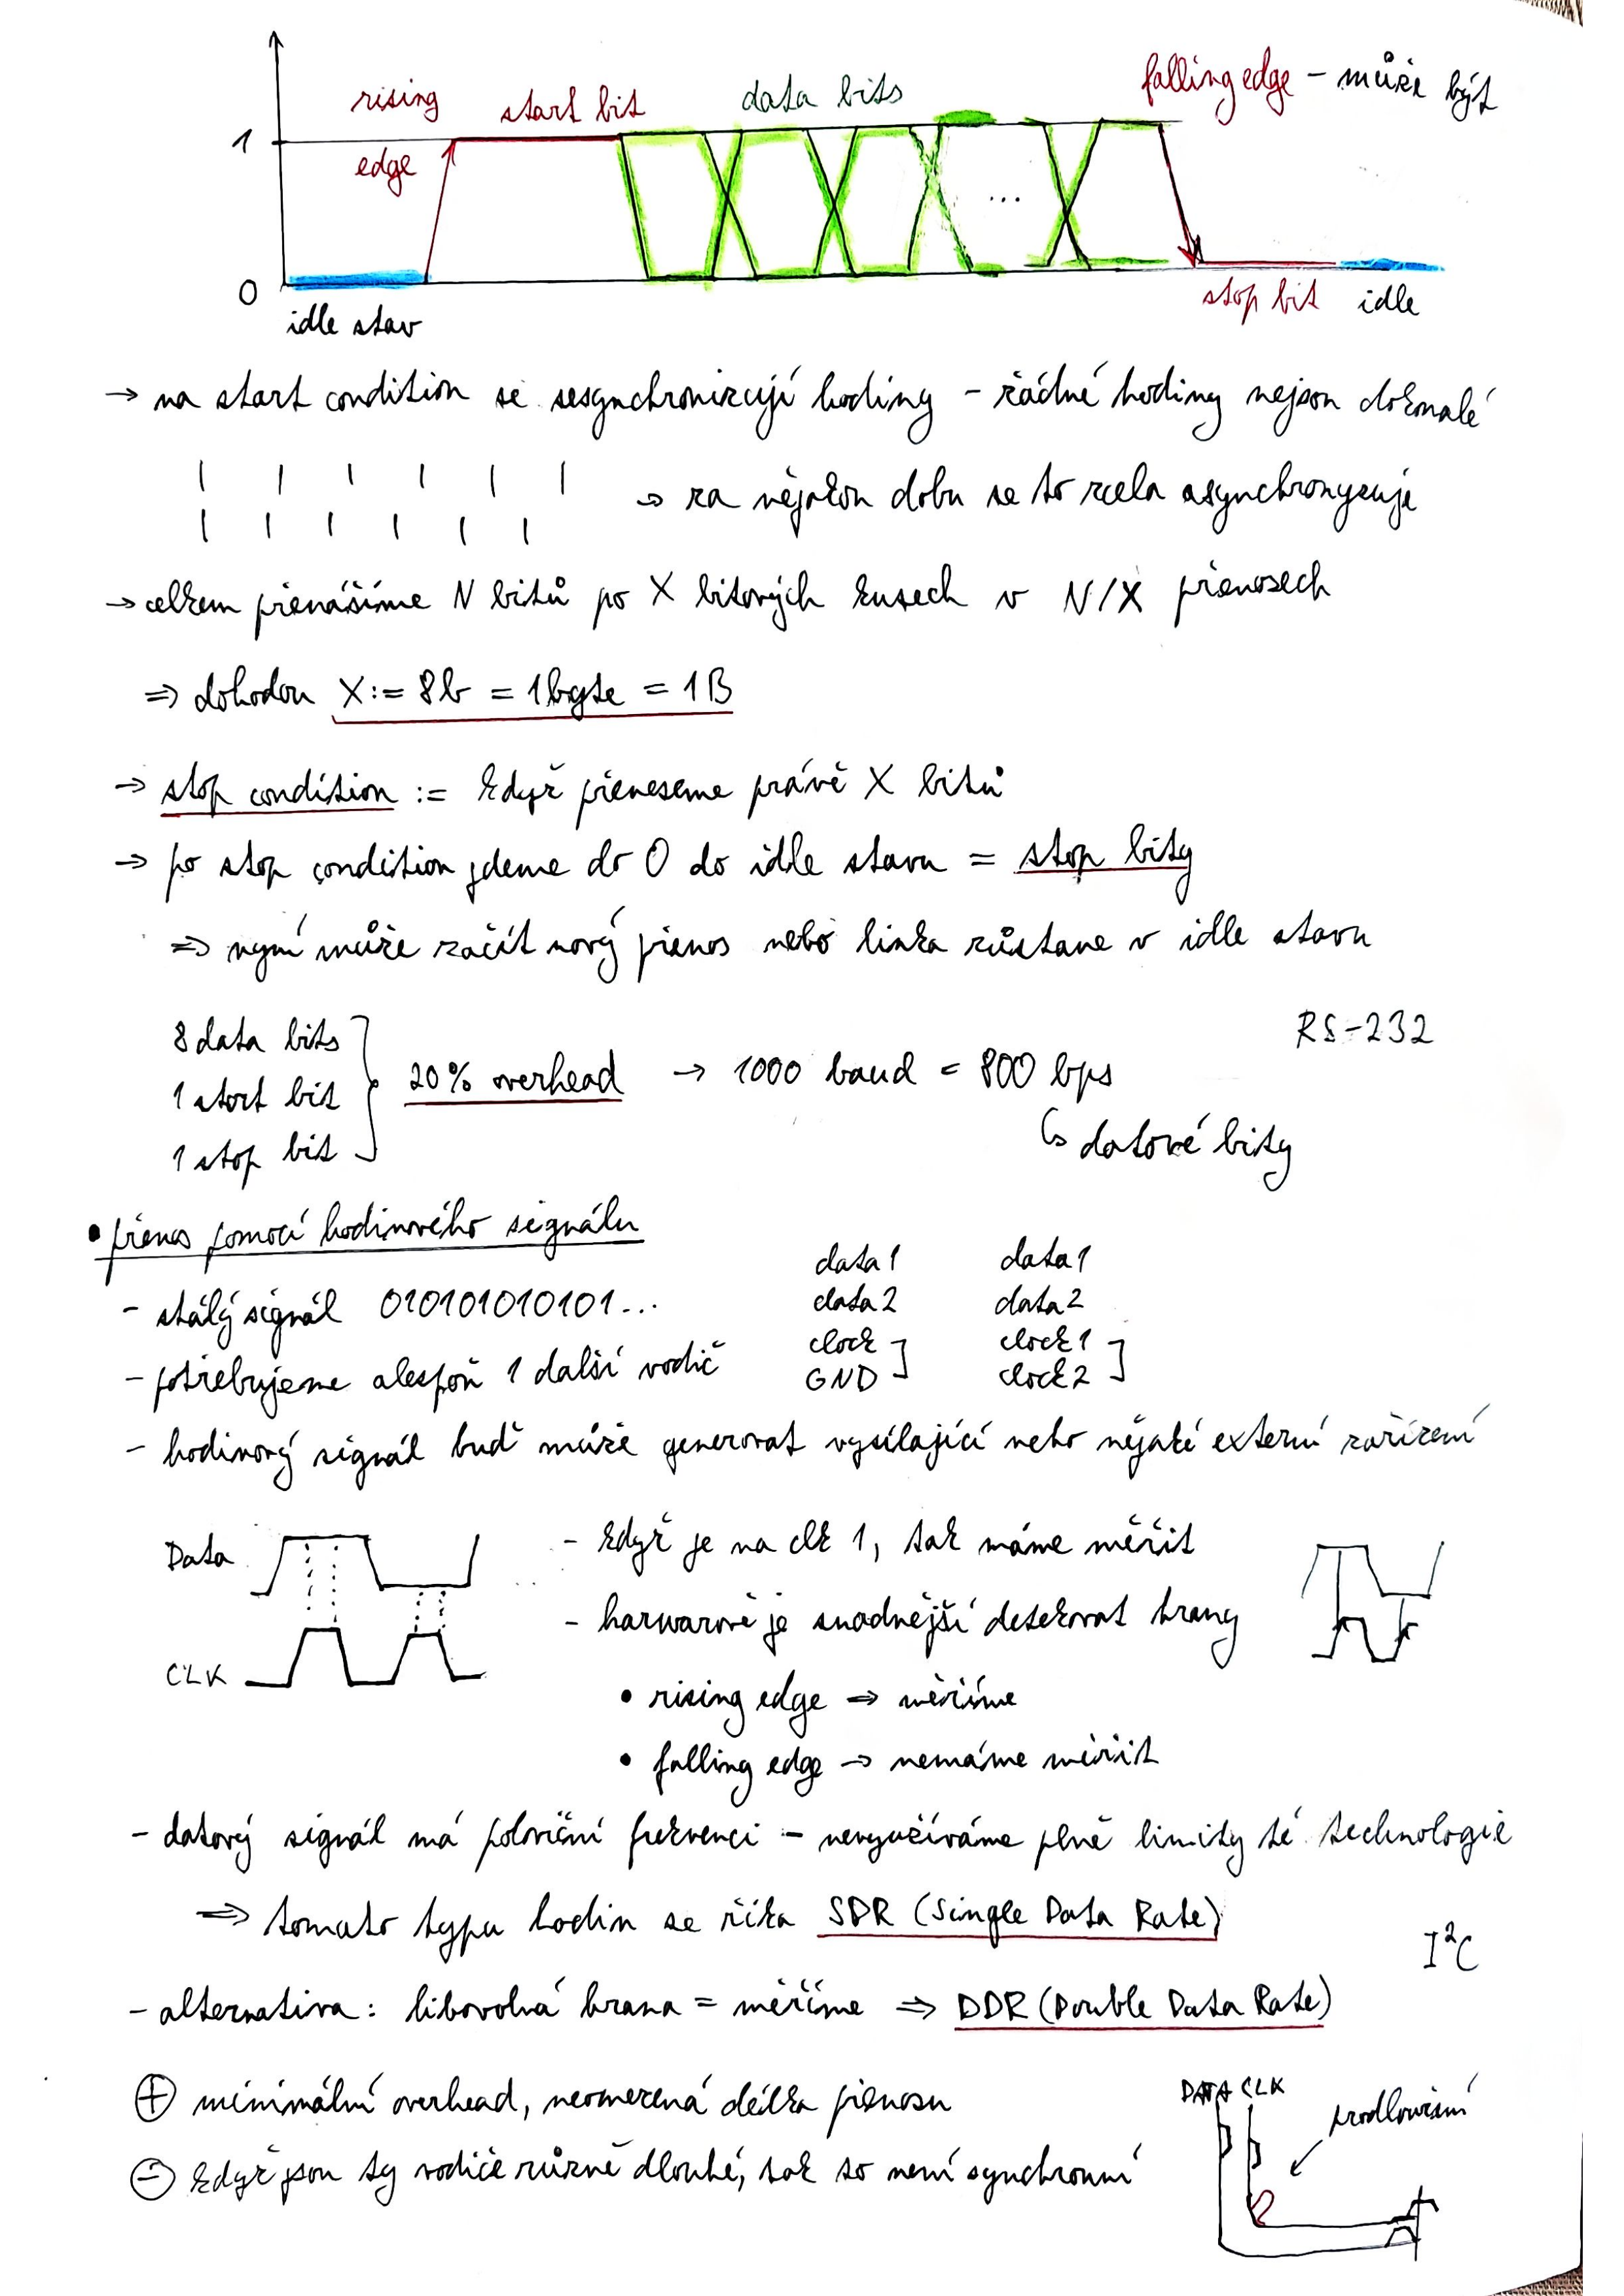 rising start bit data bits falling edge – může být
1
edge
...
0
idle stav stop bit idle
→ na start condition se sesynchronizují hodiny – žádné hodiny nejsou dokonalé
→ za nějakou dobu se to zcela asynchronyzuje
→ celkem přenášíme N bitů po X bitových kusech v N/X přenosech
⇒ dohodou X := 8b = 1byte = 1B
→ stop condition := když přeneseme právě X bitů
→ po stop condition jdeme do 0 do idle stavu = stop bity
⇒ nyní může začít nový přenos nebo linka zůstane v idle stavu
RS-232
8 data bits
1 start bit 20% overhead → 1000 baud = 800 bps
1 stop bit ↳ datové bity
• přenos pomocí hodinového signálu
data1 data1
- stálý signál 010101010101... data2 data2
clock clock1
- potřebujeme alespoň 1 další vodič GND clock2
- hodinový signál buď může generovat vysílající nebo nějaké externí zařízení
Data - když je na clk 1, tak máme měřit
- harwarově je snadnější detekovat hrany
CLK
• rising edge → měříme
• falling edge → nemáme měřit
- datový signál má poloviční frekvenci – nevyužíváme plně limity té technologie
⇒ tomuto typu hodin se říká SDR (Single Data Rate)
I²C
- alternativa: libovolná hrana = měříme ⇒ DDR (Double Data Rate)
⊕ minimální overhead, neomezená délka přenosu
DATA CLK prodloužení
⊖ když jsou ty vodiče různě dlouhé, tak to není synchronní